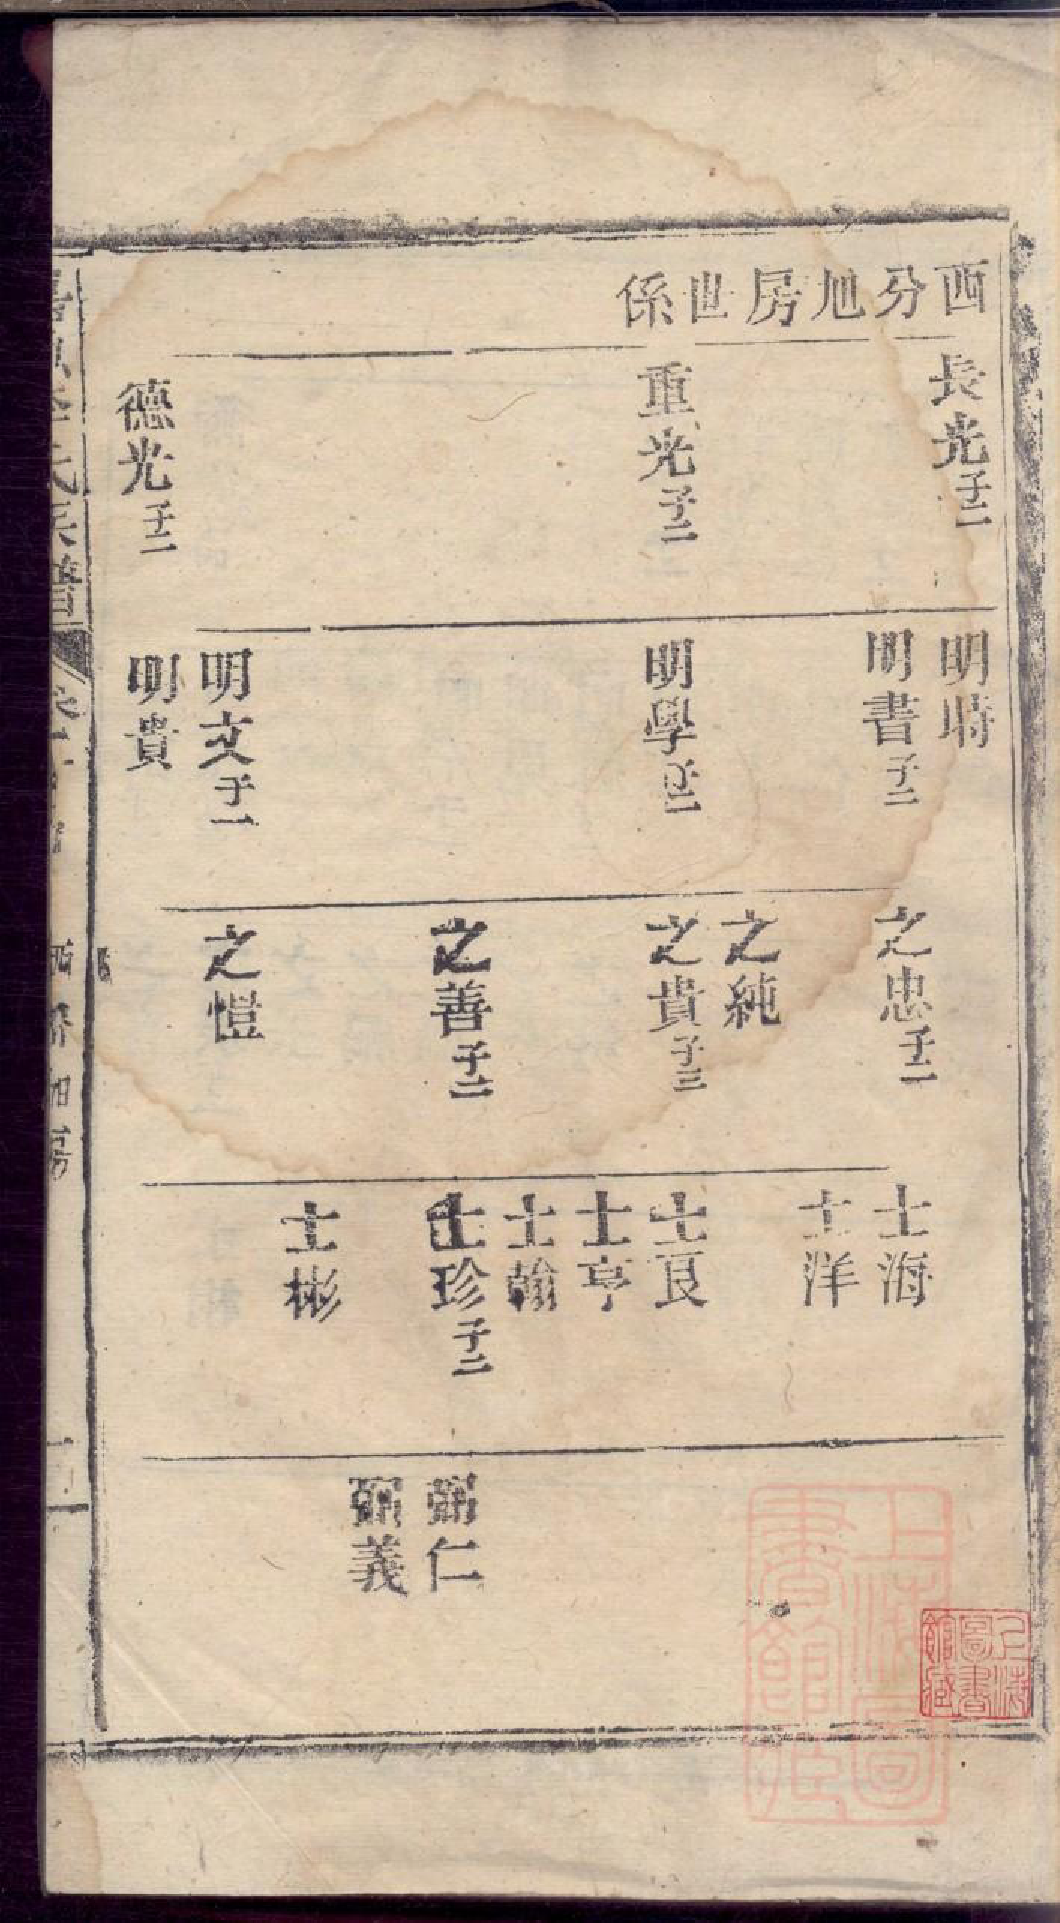 西分旭房世係
長光子二
重光子二
德光子二
明時
明書子二
明學子二
明文子一
明貴
之忠子二
之純
之貴子三
之善子二
之愷
士海
士洋
士良
士亨
士翰
士珍子二
士彬
弼仁
弼義
上海圖書館藏
上海圖書館藏
氏族譜